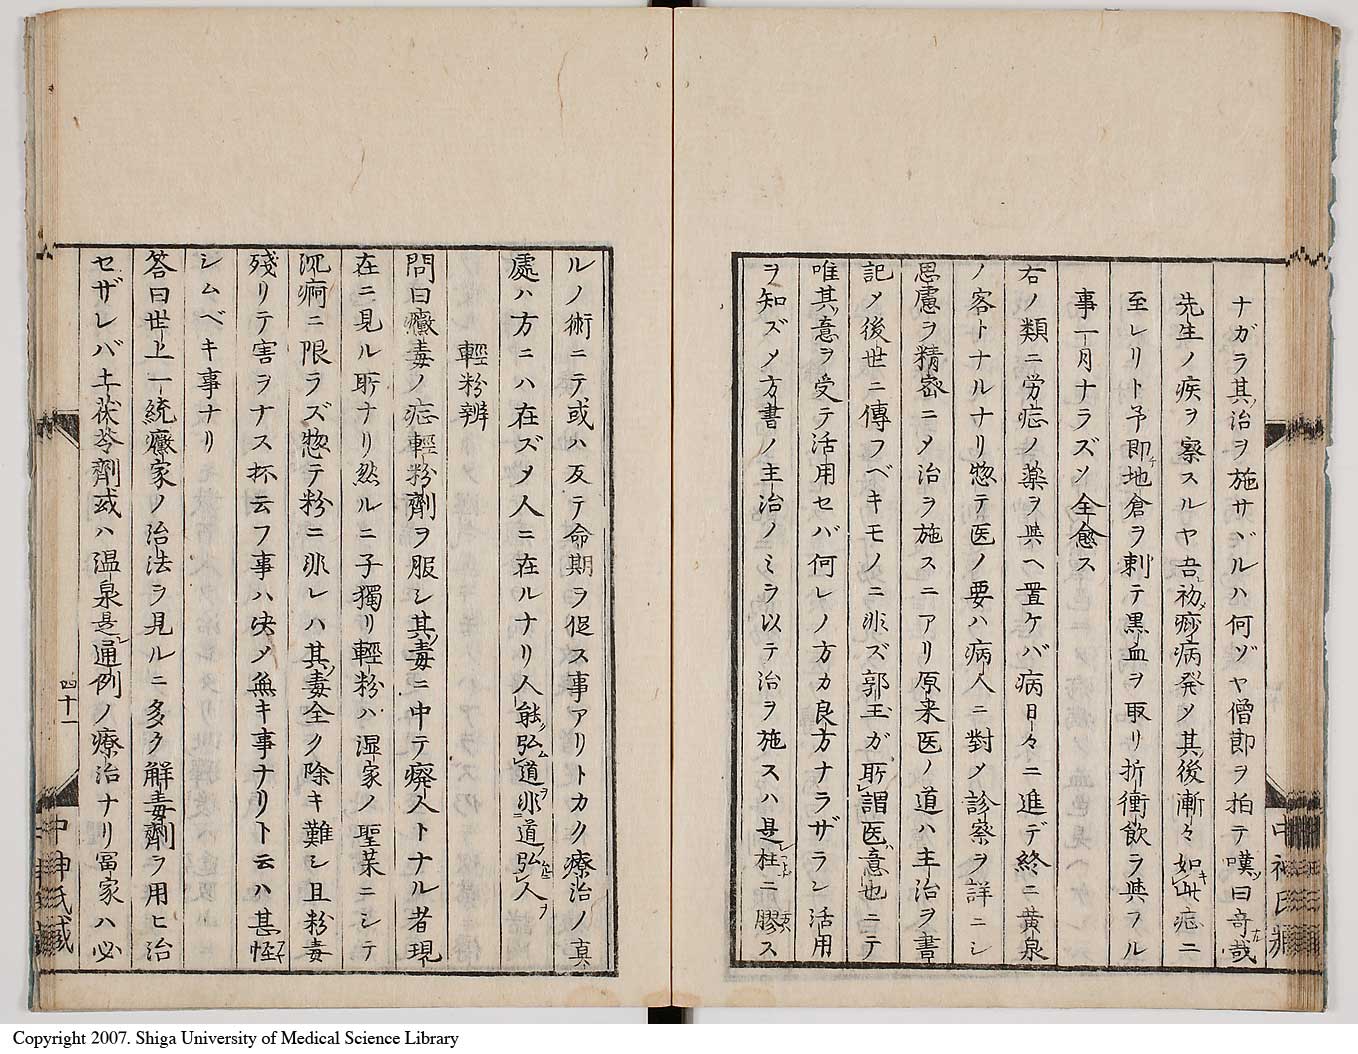 ナガラ其ノ治ヲ施サヾルハ何ゾヤ僧節ヲ拍テ嘆ソ曰奇哉
先生ノ疾ヲ察スルヤ吾初痧病発メ其ノ後漸々如キ此症ニ
至レリト予即チ地倉ヲ刺テ黒血ヲ取リ折衝飲ヲ與フル
事一月ナラズン全愈ス
右ノ類ニ労症ノ薬ヲ與ヘ置ケバ病日々ニ進デ終ニ黄泉
ノ客トナルナリ惣テ医ノ要ハ病人ニ對メ診察ヲ詳ニシ
思慮ヲ精密ニメ治ヲ施スニアリ原来医ノ道ハ主治ヲ書
記メ後世ニ傳フベキモノニ非ズ郭玉ガ所謂医ハ意也ニテ
唯其ノ意ヲ受テ活用セバ何レノ方カ良方ナラザラン活用
ヲ知ズメ方書ノ主治ノミヲ以テ治ヲ施スハ是レ柱ニ膠ス
中神氏蔵
ルノ術ニテ或ハ反テ命期ヲ促ス事アリトカク療治ノ真
處ハ方ニハ在ズメ人ニ在ルナリ人能ク弘ム道ヲ非道ノ弘ムルニ人ヲ
輕粉辨
問曰黴毒ノ症輕粉劑ヲ服シ其ノ毒ニ中テ廃人トナル者現
在ニ見ル所ナリ然ルニ子獨リ輕粉ハ湿家ノ聖薬ニシテ
沉痾ニ限ラズ惣テ粉ニ非レハ其ノ毒全ク除キ難シ且粉毒
殘リテ害ヲナス抔云フ事ハ决メ無キ事ナリト云ハ甚怪
シムベキ事ナリ
答曰世上一統黴家ノ治法ヲ見ルニ多ク解毒劑ヲ用ヒ治
セザレバ土茯苓劑或ハ温泉是レ通例ノ療治ナリ冨家ハ必
四十一
中神氏蔵